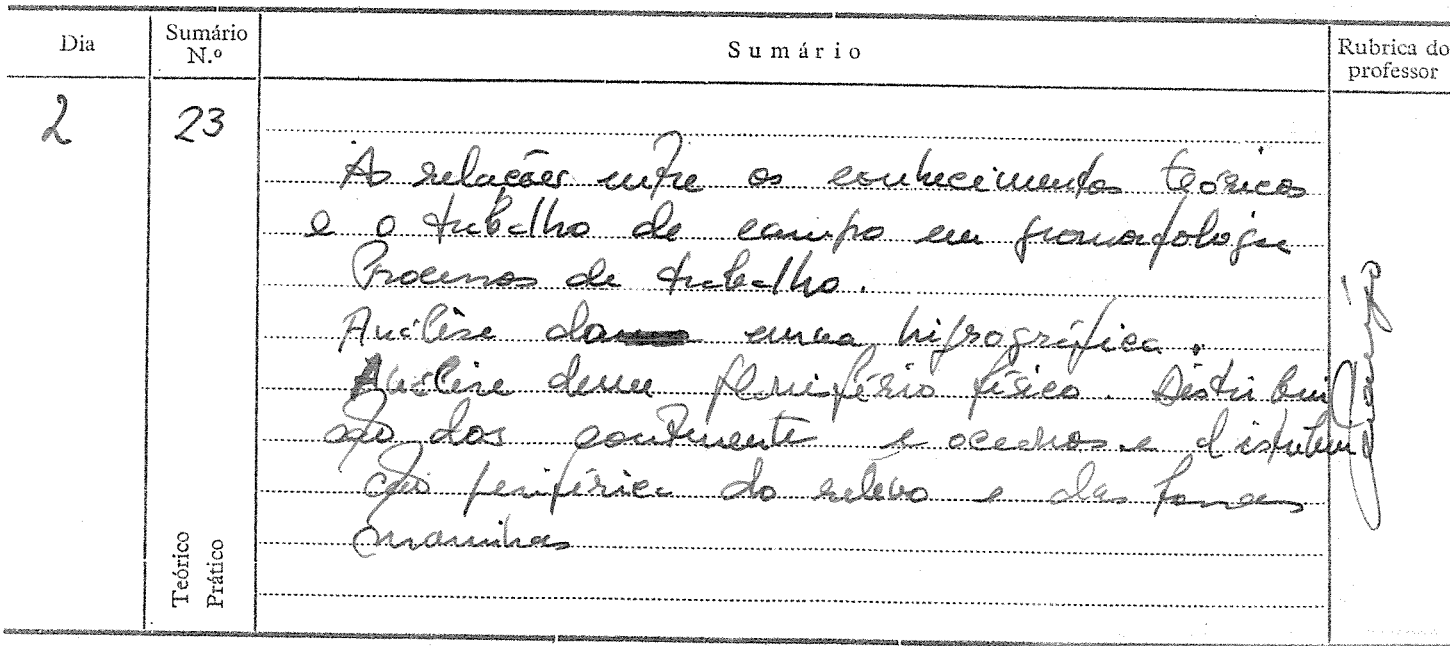 Dia
Sumário
N.º
Sumário
Rubrica do
professor
2
23
As relações entre os conhecimentos teóricos
e o trabalho de campo em geomorfologia
Processos de trabalho.
Análise da curva hipsográfica.
Análise dum planisfério físico. Distribui
ção dos continente e oceanos e distribui
ção periférica do relevo e das fossas
marinhas
Teórico
Prático